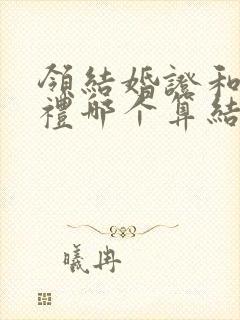 領結婚證和
禮哪个算結
曦冉